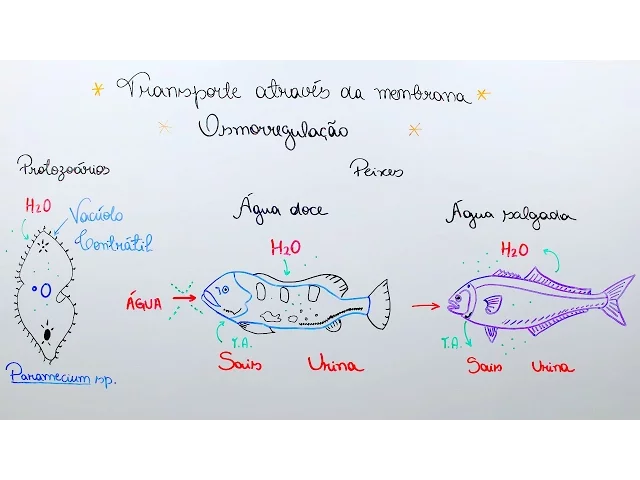 Transporte através da membrana
Osmorregulação
Protozoários
Peixes
H2O
Vacúolo
Contrátil
Água doce
Água salgada
H2O
H2O
ÁGUA
T.A.
Sais
Urina
T.A.
Sais
Urina
Paramecium sp.